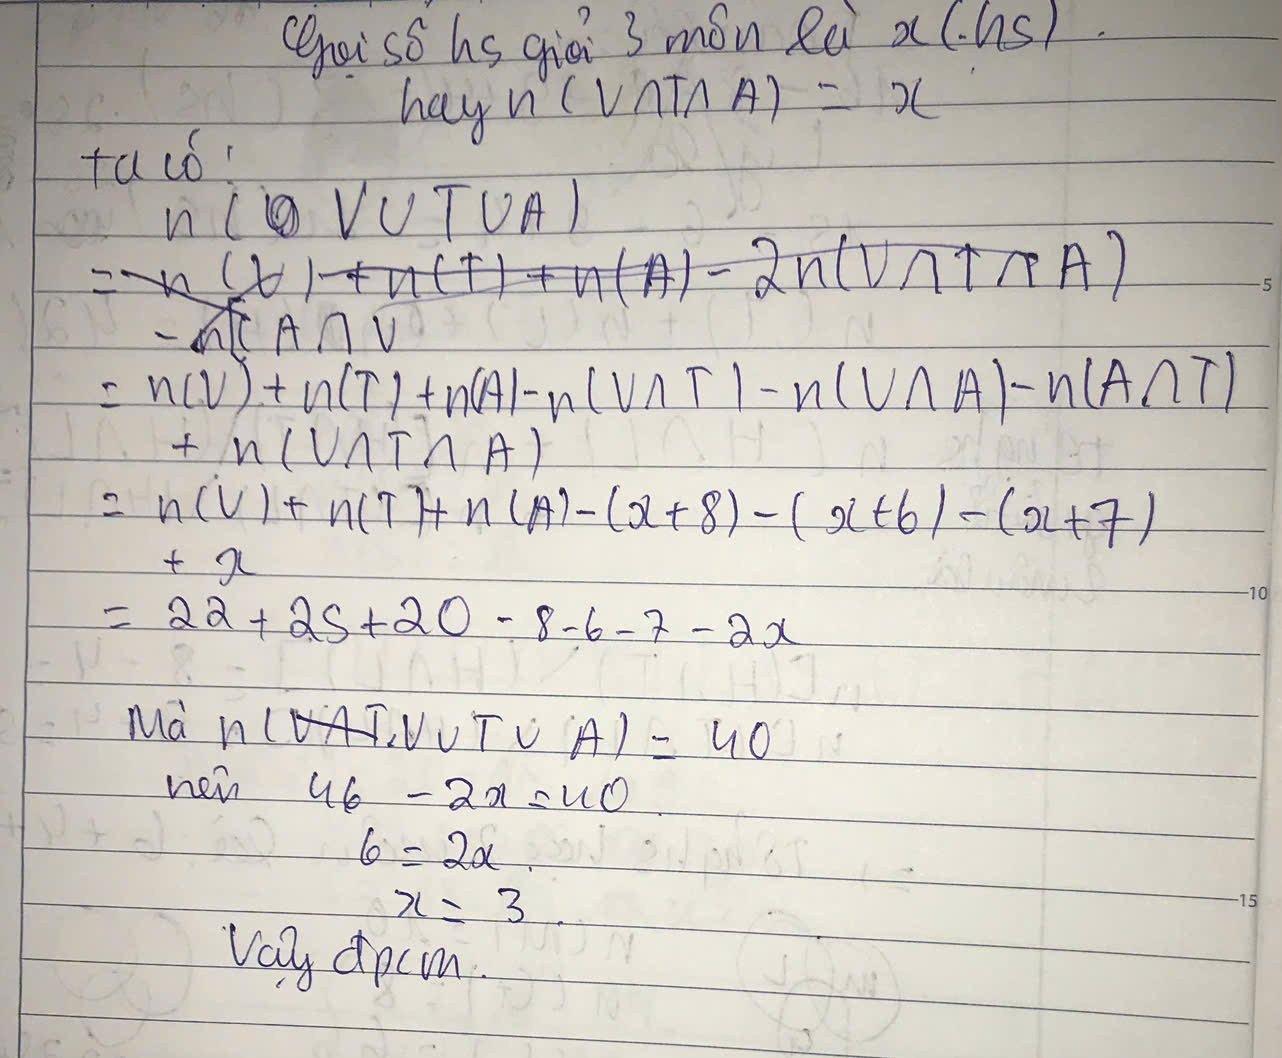 Gọi số hs giỏi 3 môn là x (hs).
hay n(V∩T∩A) = x
ta có:
n( V∪T∪A)
= n(V) + n(T) + n(A) - 2n(V∩T∩A)
- n(A∩V
= n(V) + n(T) + n(A) - n(V∩T) - n(V∩A) - n(A∩T)
+ n(V∩T∩A)
= n(V) + n(T) + n(A) - (x+8) - (x+6) - (x+7)
+ x
= 22 + 25 + 20 - 8 - 6 - 7 - 2x
Mà n(V∩T V∪T∪A) = 40
nên 46 - 2x = 40
6 = 2x.
x = 3.
Vậy đpcm.
5
10
15